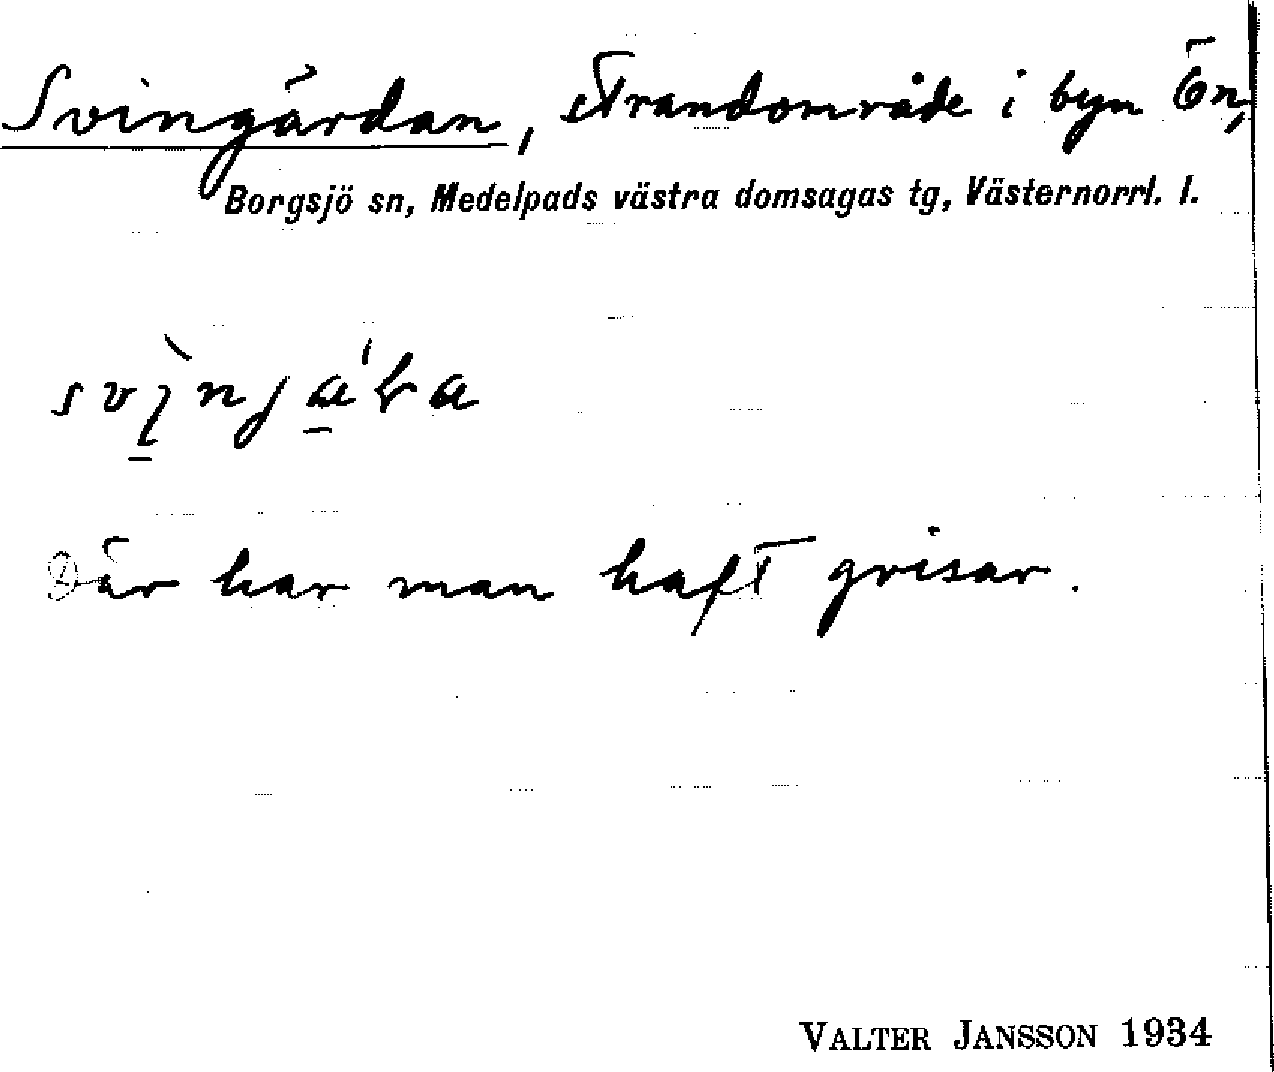 Svingärdan, strandområde i byn Ön,
Borgsjö sn, Medelpads västra domsagas tg, Västernorrl. l.
Där har man haft grisar.
VALTER JANSSON 1934